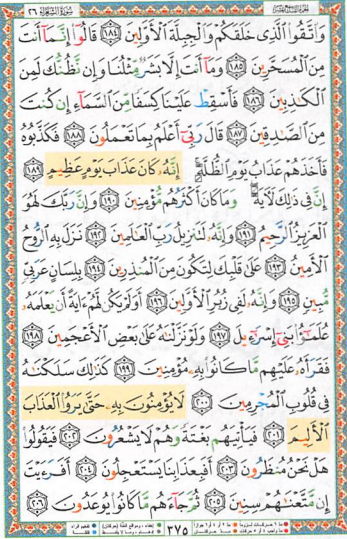 سورة الشعراء ٢٦
وَاتَّقُوا الَّذِي خَلَقَكُمْ وَالْجِبِلَّةَ الْأَوَّلِينَ ١٨٤ قَالُوا إِنَّمَا أَنتَ
مِنَ الْمُسَحَّرِينَ ١٨٥ وَمَا أَنتَ إِلَّا بَشَرٌ مِّثْلُنَا وَإِن نَّظُنُّكَ لَمِنَ
الْكَاذِبِينَ ١٨٦ فَأَسْقِطْ عَلَيْنَا كِسَفًا مِّنَ السَّمَاءِ إِن كُنتَ
مِنَ الصَّادِقِينَ ١٨٧ قَالَ رَبِّي أَعْلَمُ بِمَا تَعْمَلُونَ ١٨٨ فَكَذَّبُوهُ
فَأَخَذَهُمْ عَذَابُ يَوْمِ الظُّلَّةِ إِنَّهُ كَانَ عَذَابَ يَوْمٍ عَظِيمٍ ١٨٩
إِنَّ فِي ذَٰلِكَ لَآيَةً وَمَا كَانَ أَكْثَرُهُم مُّؤْمِنِينَ ١٩٠ وَإِنَّ رَبَّكَ لَهُوَ
الْعَزِيزُ الرَّحِيمُ ١٩١ وَإِنَّهُ لَتَنزِيلُ رَبِّ الْعَالَمِينَ ١٩٢ نَزَلَ بِهِ الرُّوحُ
الْأَمِينُ ١٩٣ عَلَىٰ قَلْبِكَ لِتَكُونَ مِنَ الْمُنذِرِينَ ١٩٤ بِلِسَانٍ عَرَبِيٍّ
مُّبِينٍ ١٩٥ وَإِنَّهُ لَفِي زُبُرِ الْأَوَّلِينَ ١٩٦ أَوَلَمْ يَكُن لَّهُمْ آيَةً أَن يَعْلَمَهُ
عُلَمَاءُ بَنِي إِسْرَائِيلَ ١٩٧ وَلَوْ نَزَّلْنَاهُ عَلَىٰ بَعْضِ الْأَعْجَمِينَ ١٩٨
فَقَرَأَهُ عَلَيْهِم مَّا كَانُوا بِهِ مُؤْمِنِينَ ١٩٩ كَذَٰلِكَ سَلَكْنَاهُ
فِي قُلُوبِ الْمُجْرِمِينَ ٢٠٠ لَا يُؤْمِنُونَ بِهِ حَتَّىٰ يَرَوُا الْعَذَابَ
الْأَلِيمَ ٢٠١ فَيَأْتِيَهُم بَغْتَةً وَهُمْ لَا يَشْعُرُونَ ٢٠٢ فَيَقُولُوا
هَلْ نَحْنُ مُنظَرُونَ ٢٠٣ أَفَبِعَذَابِنَا يَسْتَعْجِلُونَ ٢٠٤ أَفَرَأَيْتَ
إِن مَّتَّعْنَاهُمْ سِنِينَ ٢٠٥ ثُمَّ جَاءَهُم مَّا كَانُوا يُوعَدُونَ ٢٠٦
٣٧٥